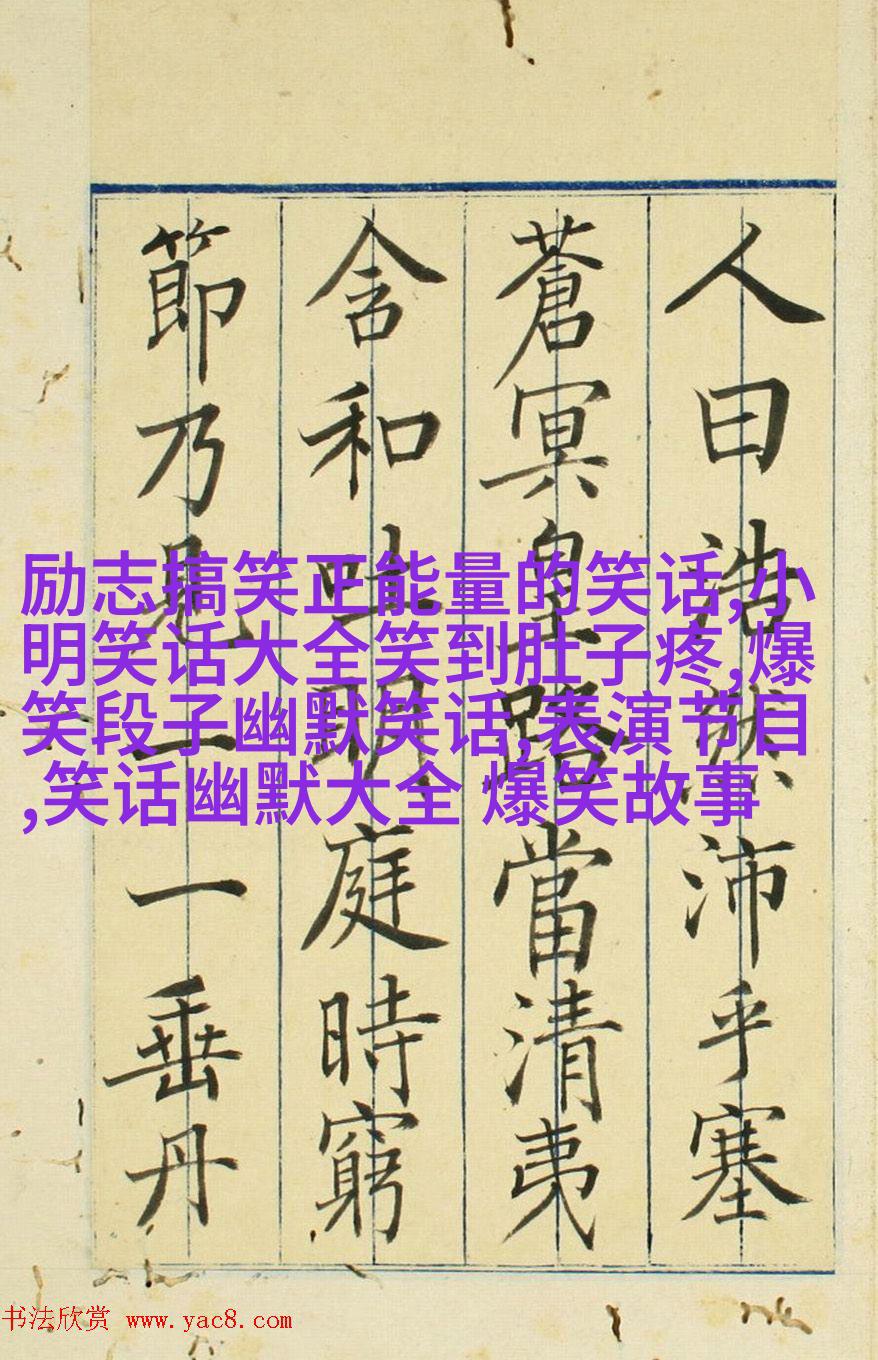 人曰浩然沛乎塞
蒼冥皇路當清夷
含和吐明庭時窮
節乃見一一垂丹
励志搞笑正能量的笑话,小
明笑话大全笑到肚子疼,爆
笑段子幽默笑话,表演节目
,笑话幽默大全 爆笑故事
书法欣赏 www.yac8.com